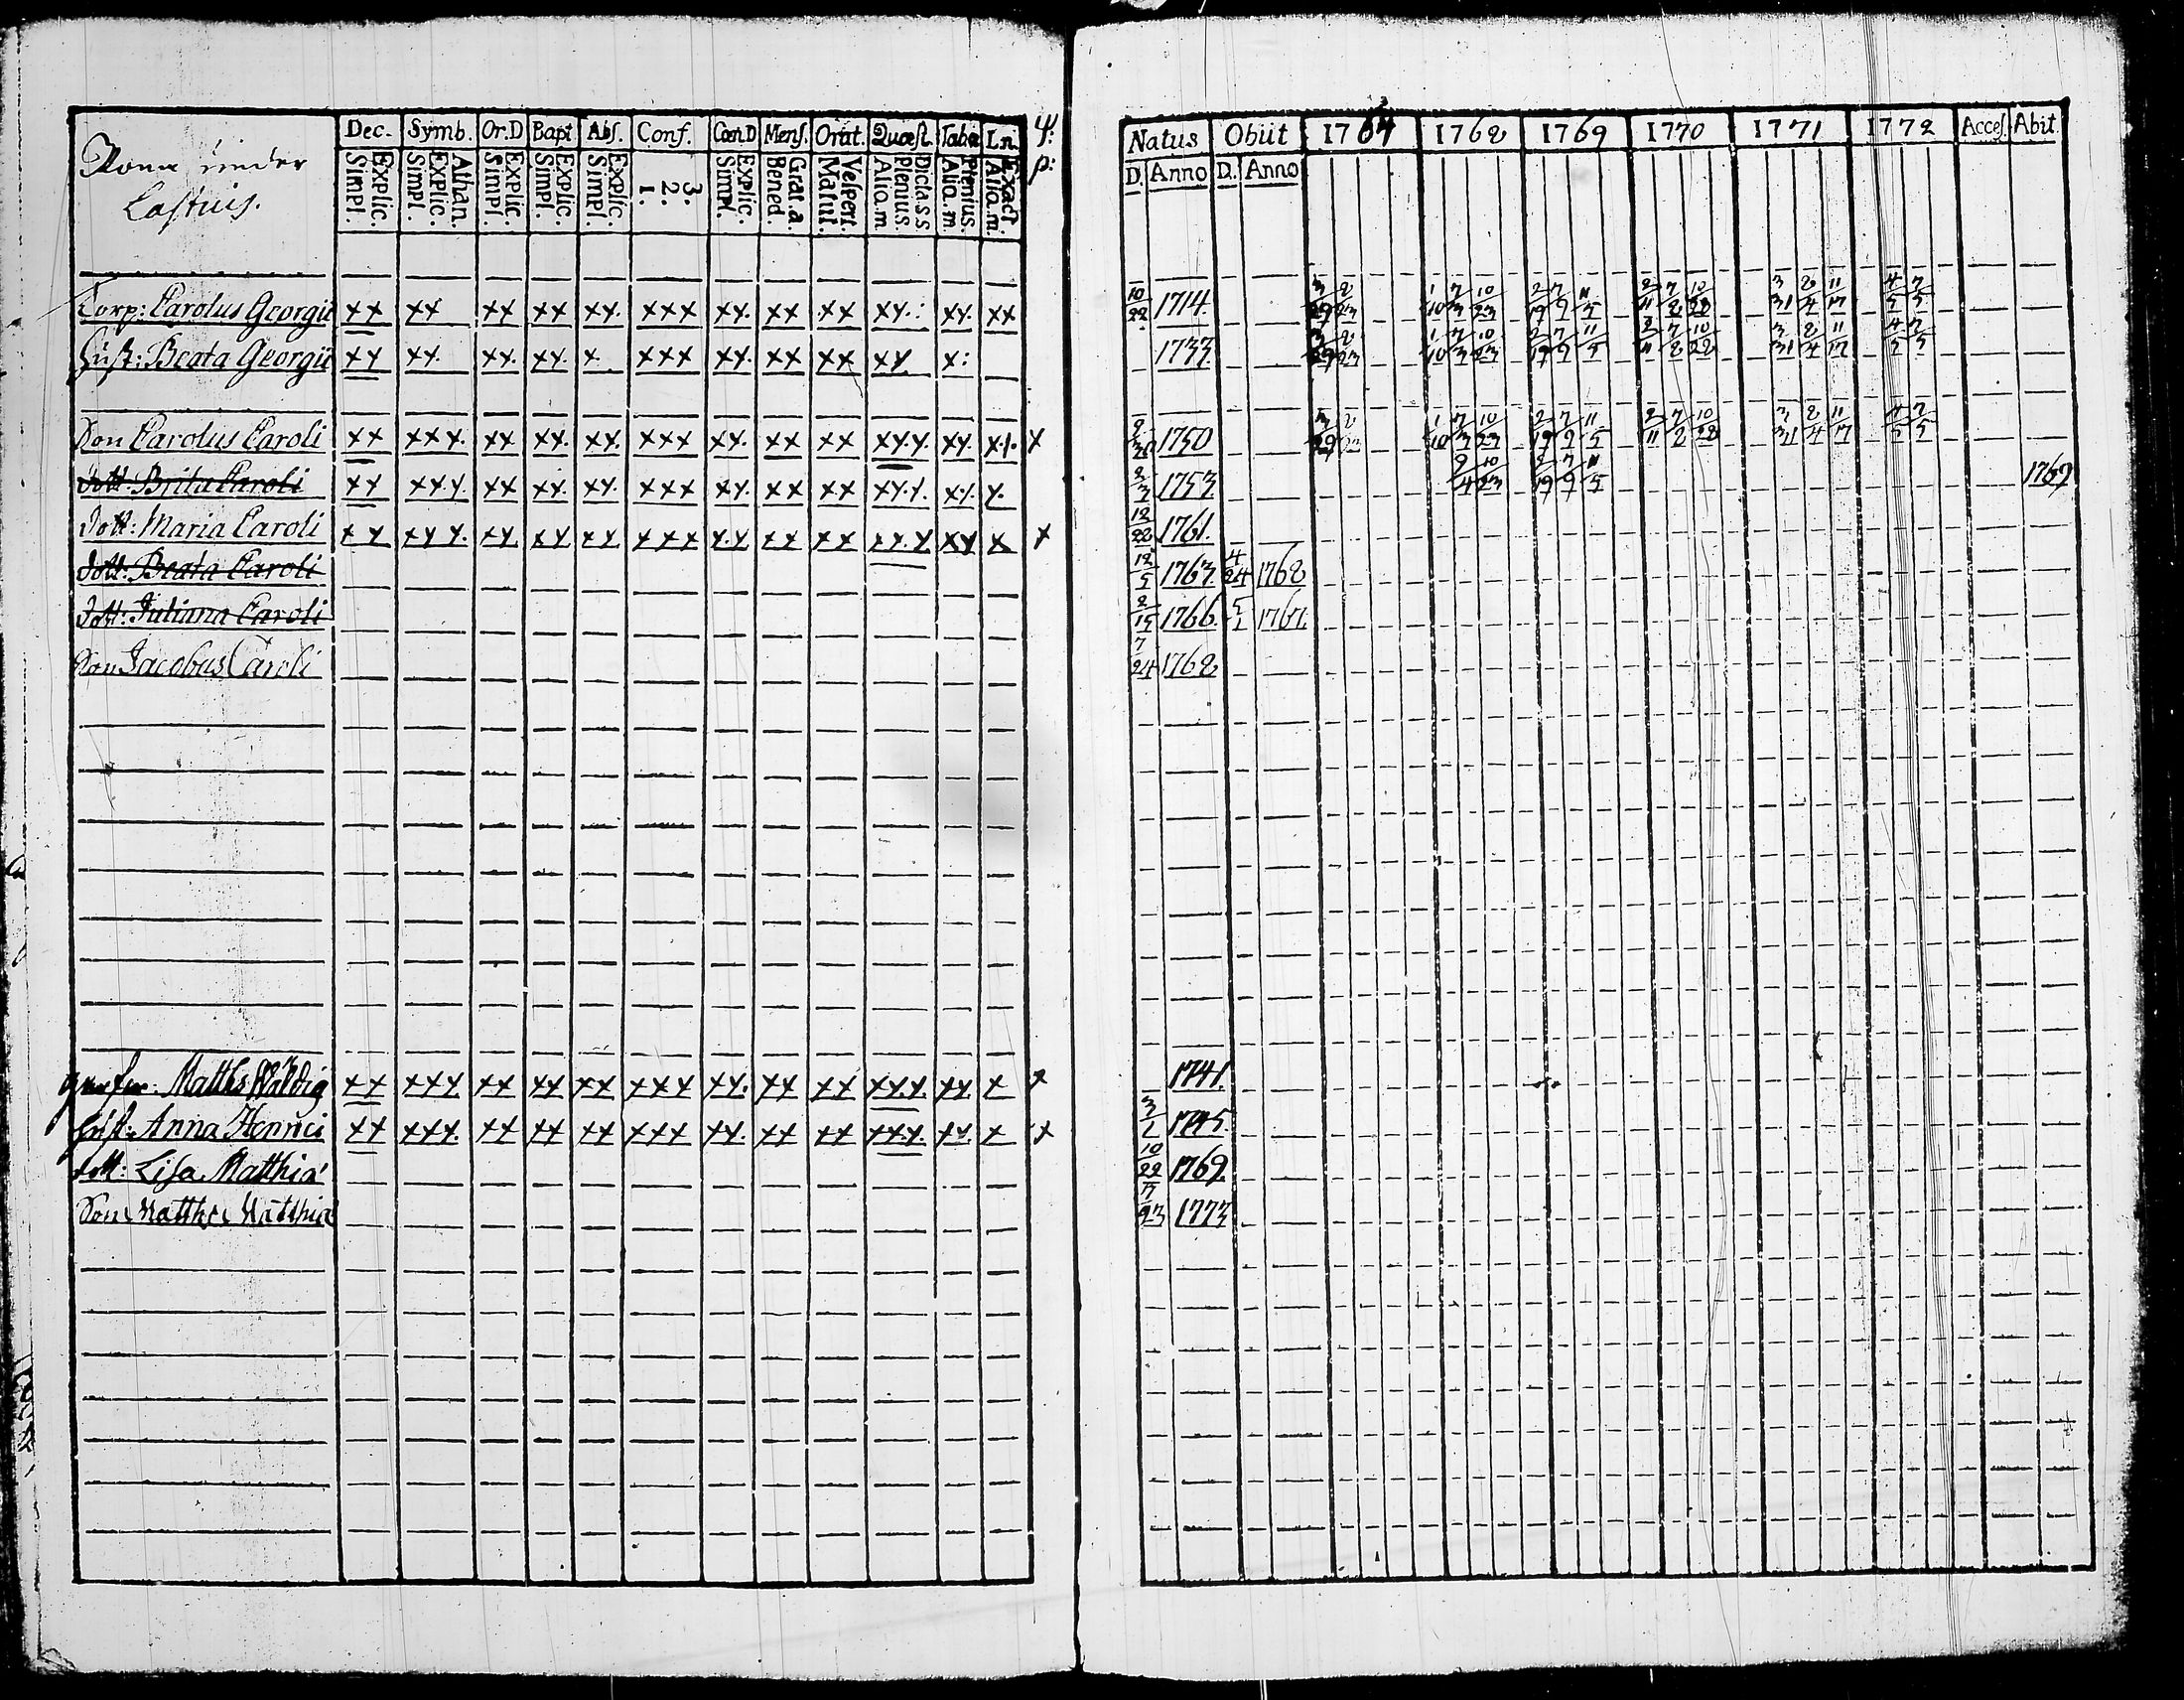 under
Lastuis.
Dec. Symb. Or.D Bapt Abſ. Conf. Cœn.D Menſ. Orat. Quæſt. Tabæ Ln. Ψ:
Explic. Simpl. Athan. Explic. Simpl. Explic. Simpl. Explic. Simpl. Explic. Simpl. 3. 2. 1. Explic. Simpl. Grat.a. Bened. Veſpert. Matut. Dict.a.s.s Plenius. Alio.m Plenius. Alio.m. Exact. Alio.m. p:
Natus Obiit 1767 1768 1769 1770 1771 1772 Acceſ. Abit.
D. Anno D. Anno
Corp: Carolus Georgii xx xx xx xx xx. xxx xx. xx xx xx.: xx. xx 10/22 1714. 3/29 8/23 1/10 7/3 10/23 2/19 7/9 11/5 2/11 7/8 10/28 3/31 8/4 11/17 4/5 7/5
Huſt: Beata Georgii xx xx. xx. xx. x xxx xx. xx xx xx x: 1733. 3/29 8/23 1/10 7/3 10/23 2/19 7/9 11/5 2/11 7/8 10/28 3/31 8/4 11/17 4/5 7/5
Son Carolus Caroli xx xxx. xx xx. xx. xxx xx. xx xx xxx. xx. x/. x 1750 3/29 8/23 1/10 7/3 10/23 2/19 7/9 11/5 2/11 7/8 10/28 3/31 8/4 11/17 4/5 7/5
dott: Brita Caroli xx xx.x xx xx. xx. xxx xx. xx xx xx.x. xx. x. 1753. 9/4 10/23 2/19 7/9 11/5 1769
Dott: Maria Caroli xx xxx. xx xx xx xxx x.x xx xx xx.x xx x x 12/22 1761.
dott: Beata Caroli 12/5 1763. 4/24 1768
Dott: Juliana Caroli 2/15 1766. 1767.
Son Jacobus Caroli 7/24 1768
Matths xx xxx xx xx xx xxx xx. xx xx xx.x. xx x x 1741.
huſt: Anna Henrici xx xxx. xx xx xx xxx xx. xx xx xx.x. xx. x x 1745.
dott: Liſa Matthiæ 10/22 1769.
Son Matthe Matthiæ 1773